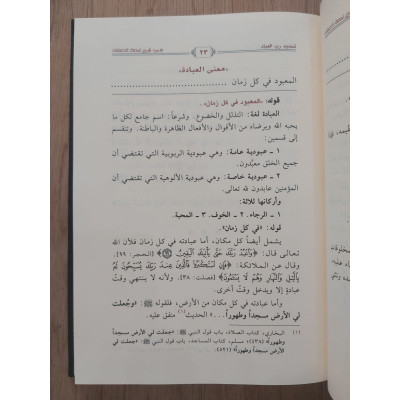 ٢٣
«معنى العبادة»
المعبود في كل زمان
قوله: «المعبود في كل زمان».
العبادة لغة: التذلل والخضوع. وشرعاً: اسم جامع لكل ما
يحبه الله ويرضاه من الأقوال والأفعال الظاهرة والباطنة. وتنقسم
إلى قسمين:
١ ـ عبودية عامة: وهي عبودية الربوبية التي تقتضي أن
جميع الخلق معبّدون.
٢ ـ عبودية خاصة: وهي عبودية الألوهية التي تقتضي أن
المؤمنين عابدون لله تعالى.
وأركانها ثلاثة:
١ ـ الرجاء. ٢ ـ الخوف. ٣ ـ المحبة.
قوله: «في كل زمان».
يشمل أيضاً كل مكان، أما عبادته في كل زمان فلأن الله
تعالى قال: ﴿وَاعْبُدْ رَبَّكَ حَتَّى يَأْتِيَكَ الْيَقِينُ ۝٩٩﴾ [الحجر: ٩٩].
وقال عن الملائكة: ﴿فَإِنِ اسْتَكْبَرُوا فَالَّذِينَ عِندَ رَبِّكَ يُسَبِّحُونَ لَهُ
بِاللَّيْلِ وَالنَّهَارِ وَهُمْ لَا يَسْأَمُونَ﴾ [فصلت: ٣٨]. ولأنه لا ينتهي وقتُ
عبادةٍ إلا ويدخل وقتُ أخرى.
وأما عبادته في كل مكان من الأرض، فلقوله: «وجُعلت
لي الأرض مسجداً وطهوراً ...» الحديث(١) متفق عليه.
(١) البخاري، كتاب الصلاة، باب قول النبي ﷺ: «جعلت لي الأرض مسجداً
وطهوراً» (٤٣٨)، مسلم، كتاب المساجد، باب قول النبي ﷺ: «جعلت
لي الأرض مسجداً وطهوراً» (٥٢١).